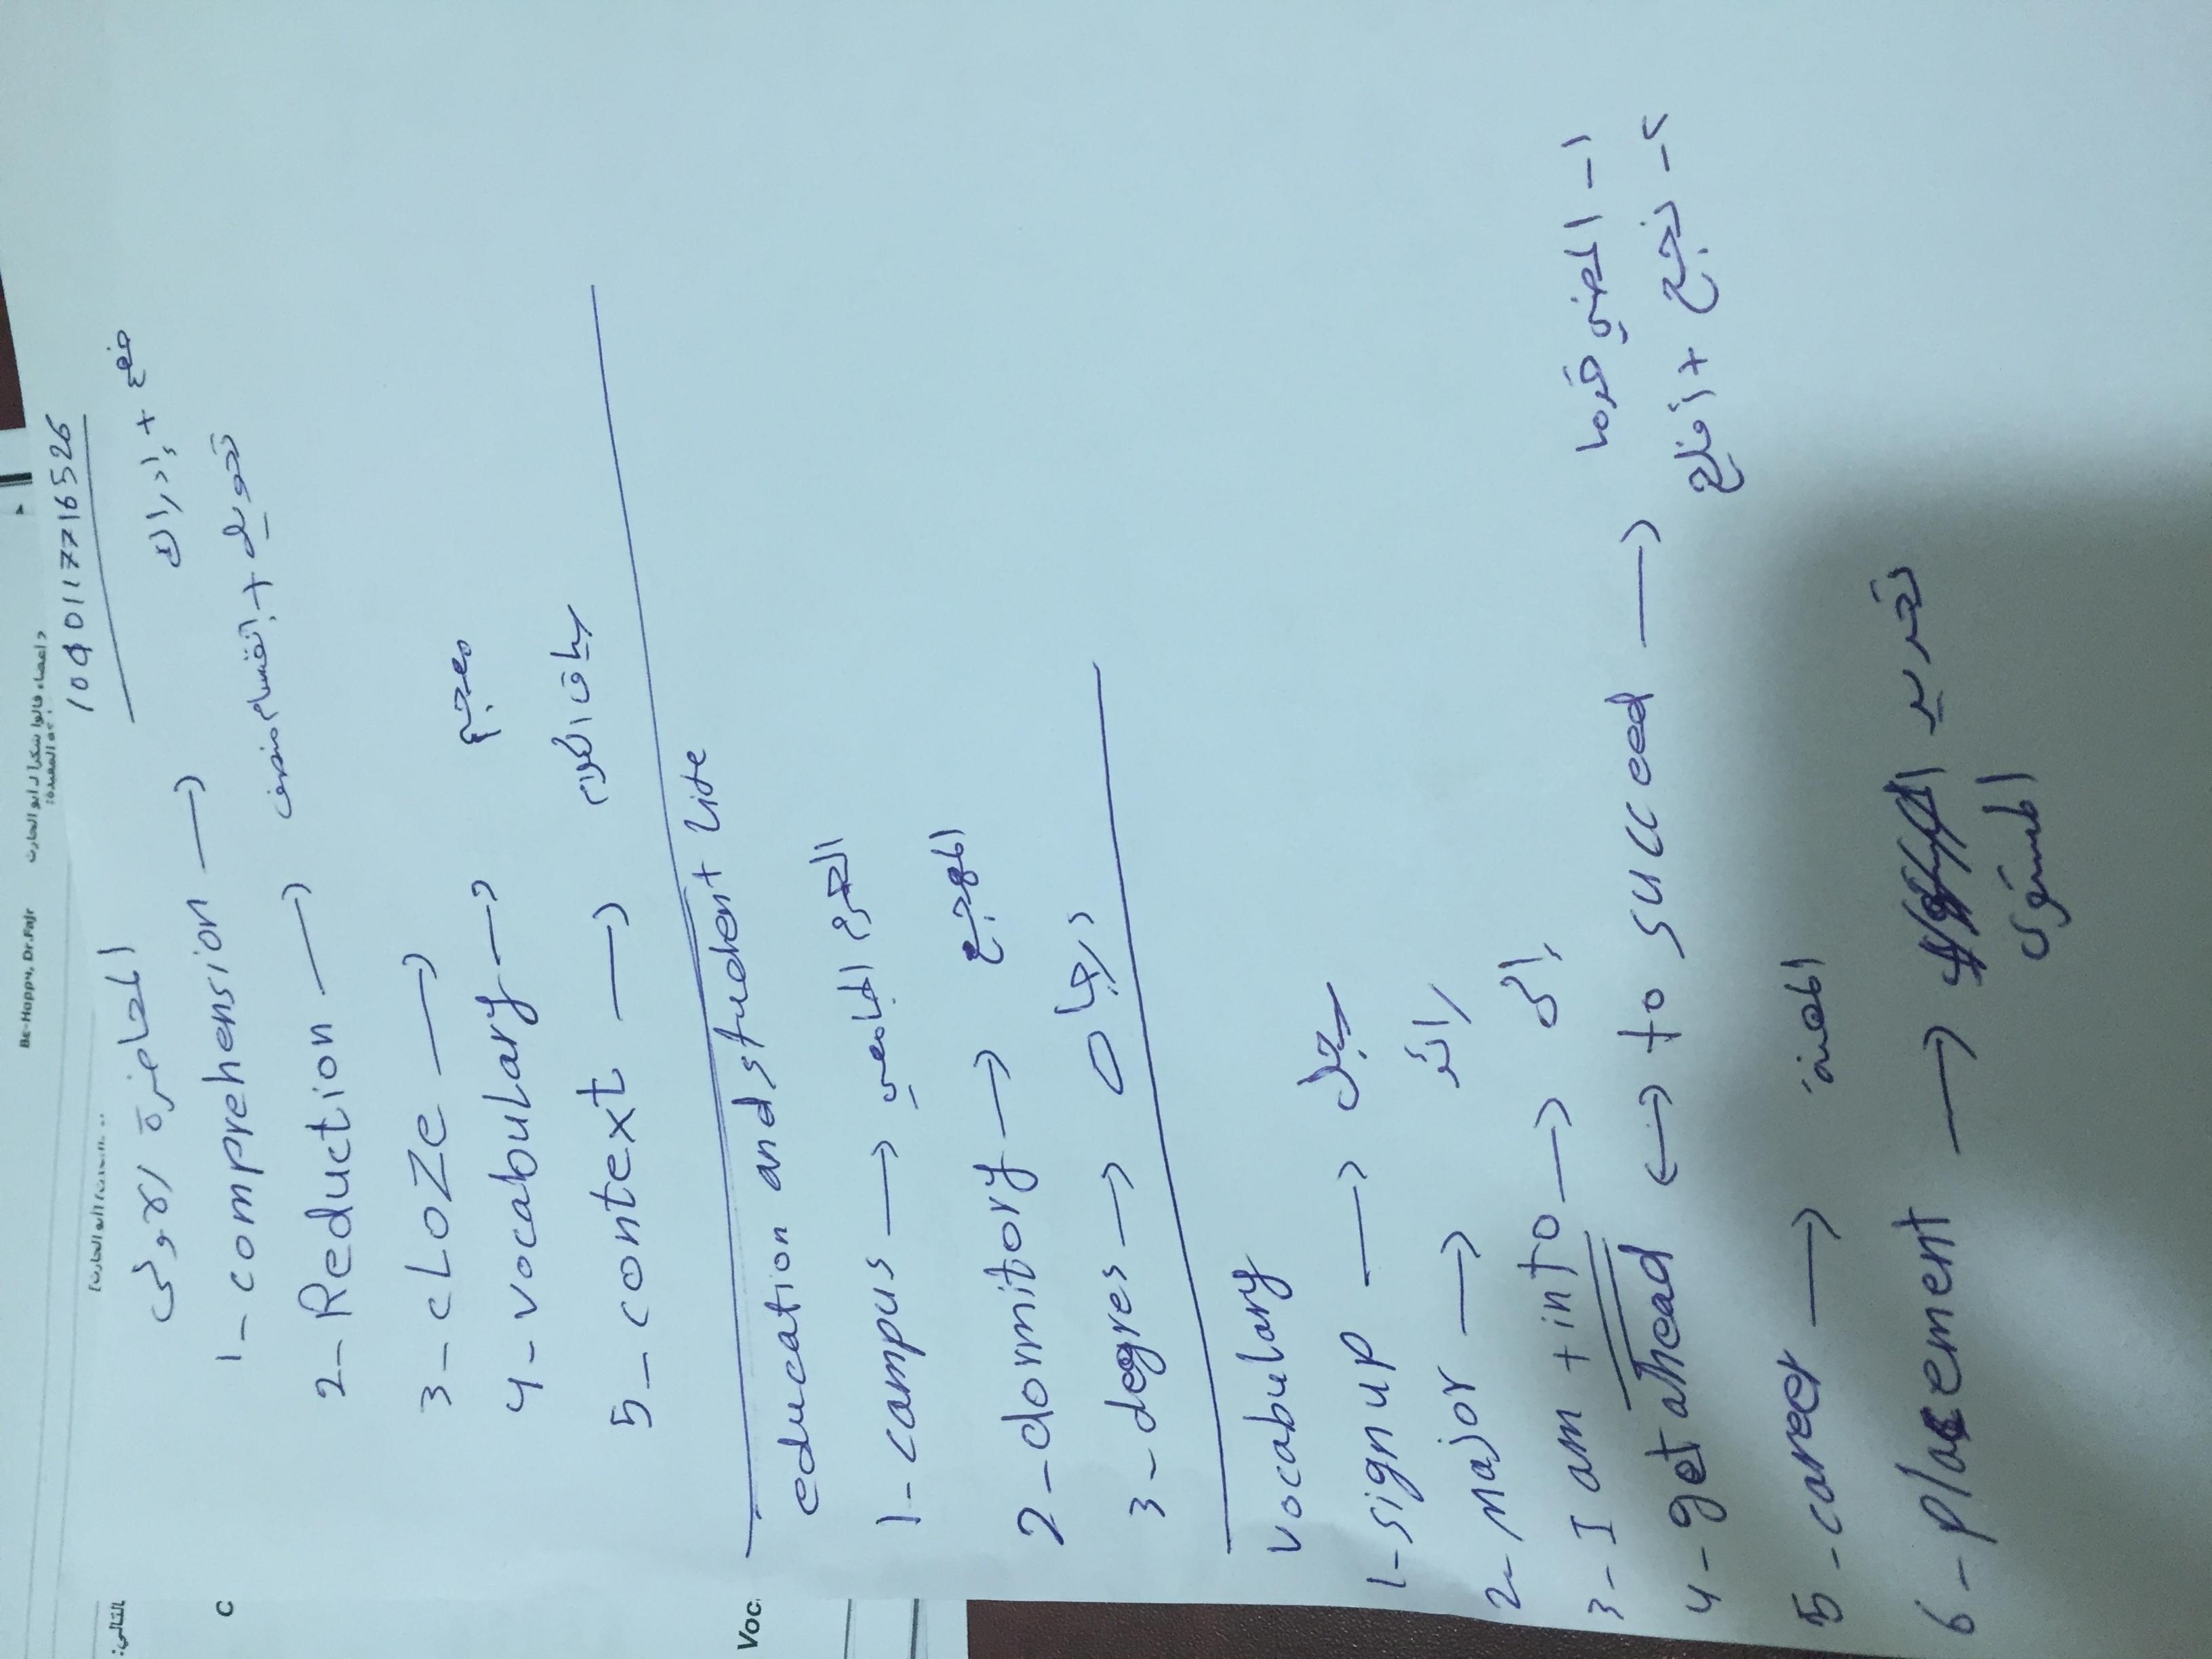 Be-Happy, Dr.Fajr
1090117716526
المحاضرة الاولى
1- comprehension → إدراك + فهم
2- Reduction → تحويل + انقسام منصف
3- cLoZe →
4- vocabulary → معجم
5- context → سياق الكلام
education and student Life
1- campus → الحرم الجامعي
2- domitory → المهجع
3- degres → درجات
vocabulary
1- sign up → سجل
2- major → رائد
3- I am + into → إلى
4- get ahead ↔ to succeed → 1- المضي قدما
2- نجح + افلح
5- career → المهنة
6- placement → تحديد
المستوى
التالي:
C
Voc